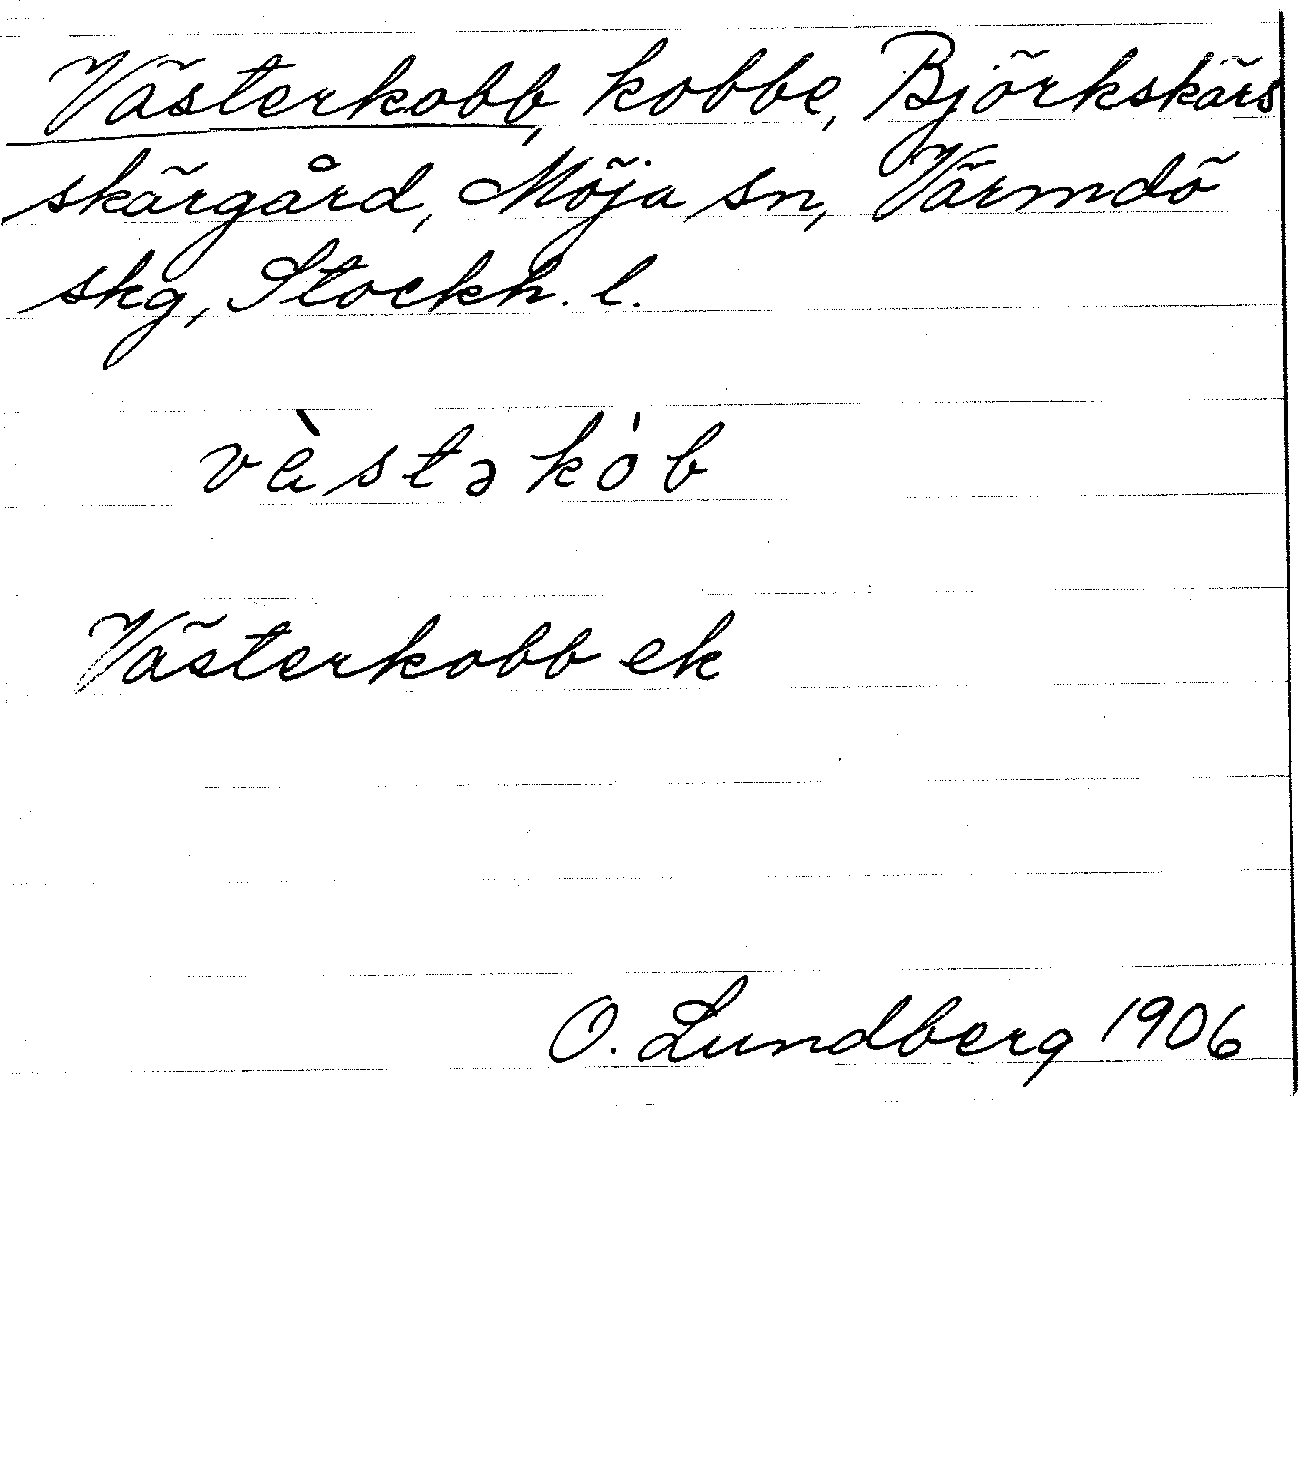 Västerkobb, kobbe, Björkskärs
skärgård, Möja sn, Värmdö
skg, Stockh. l.
vὲstəkȯb
Västerkobb ek
O. Lundberg 1906